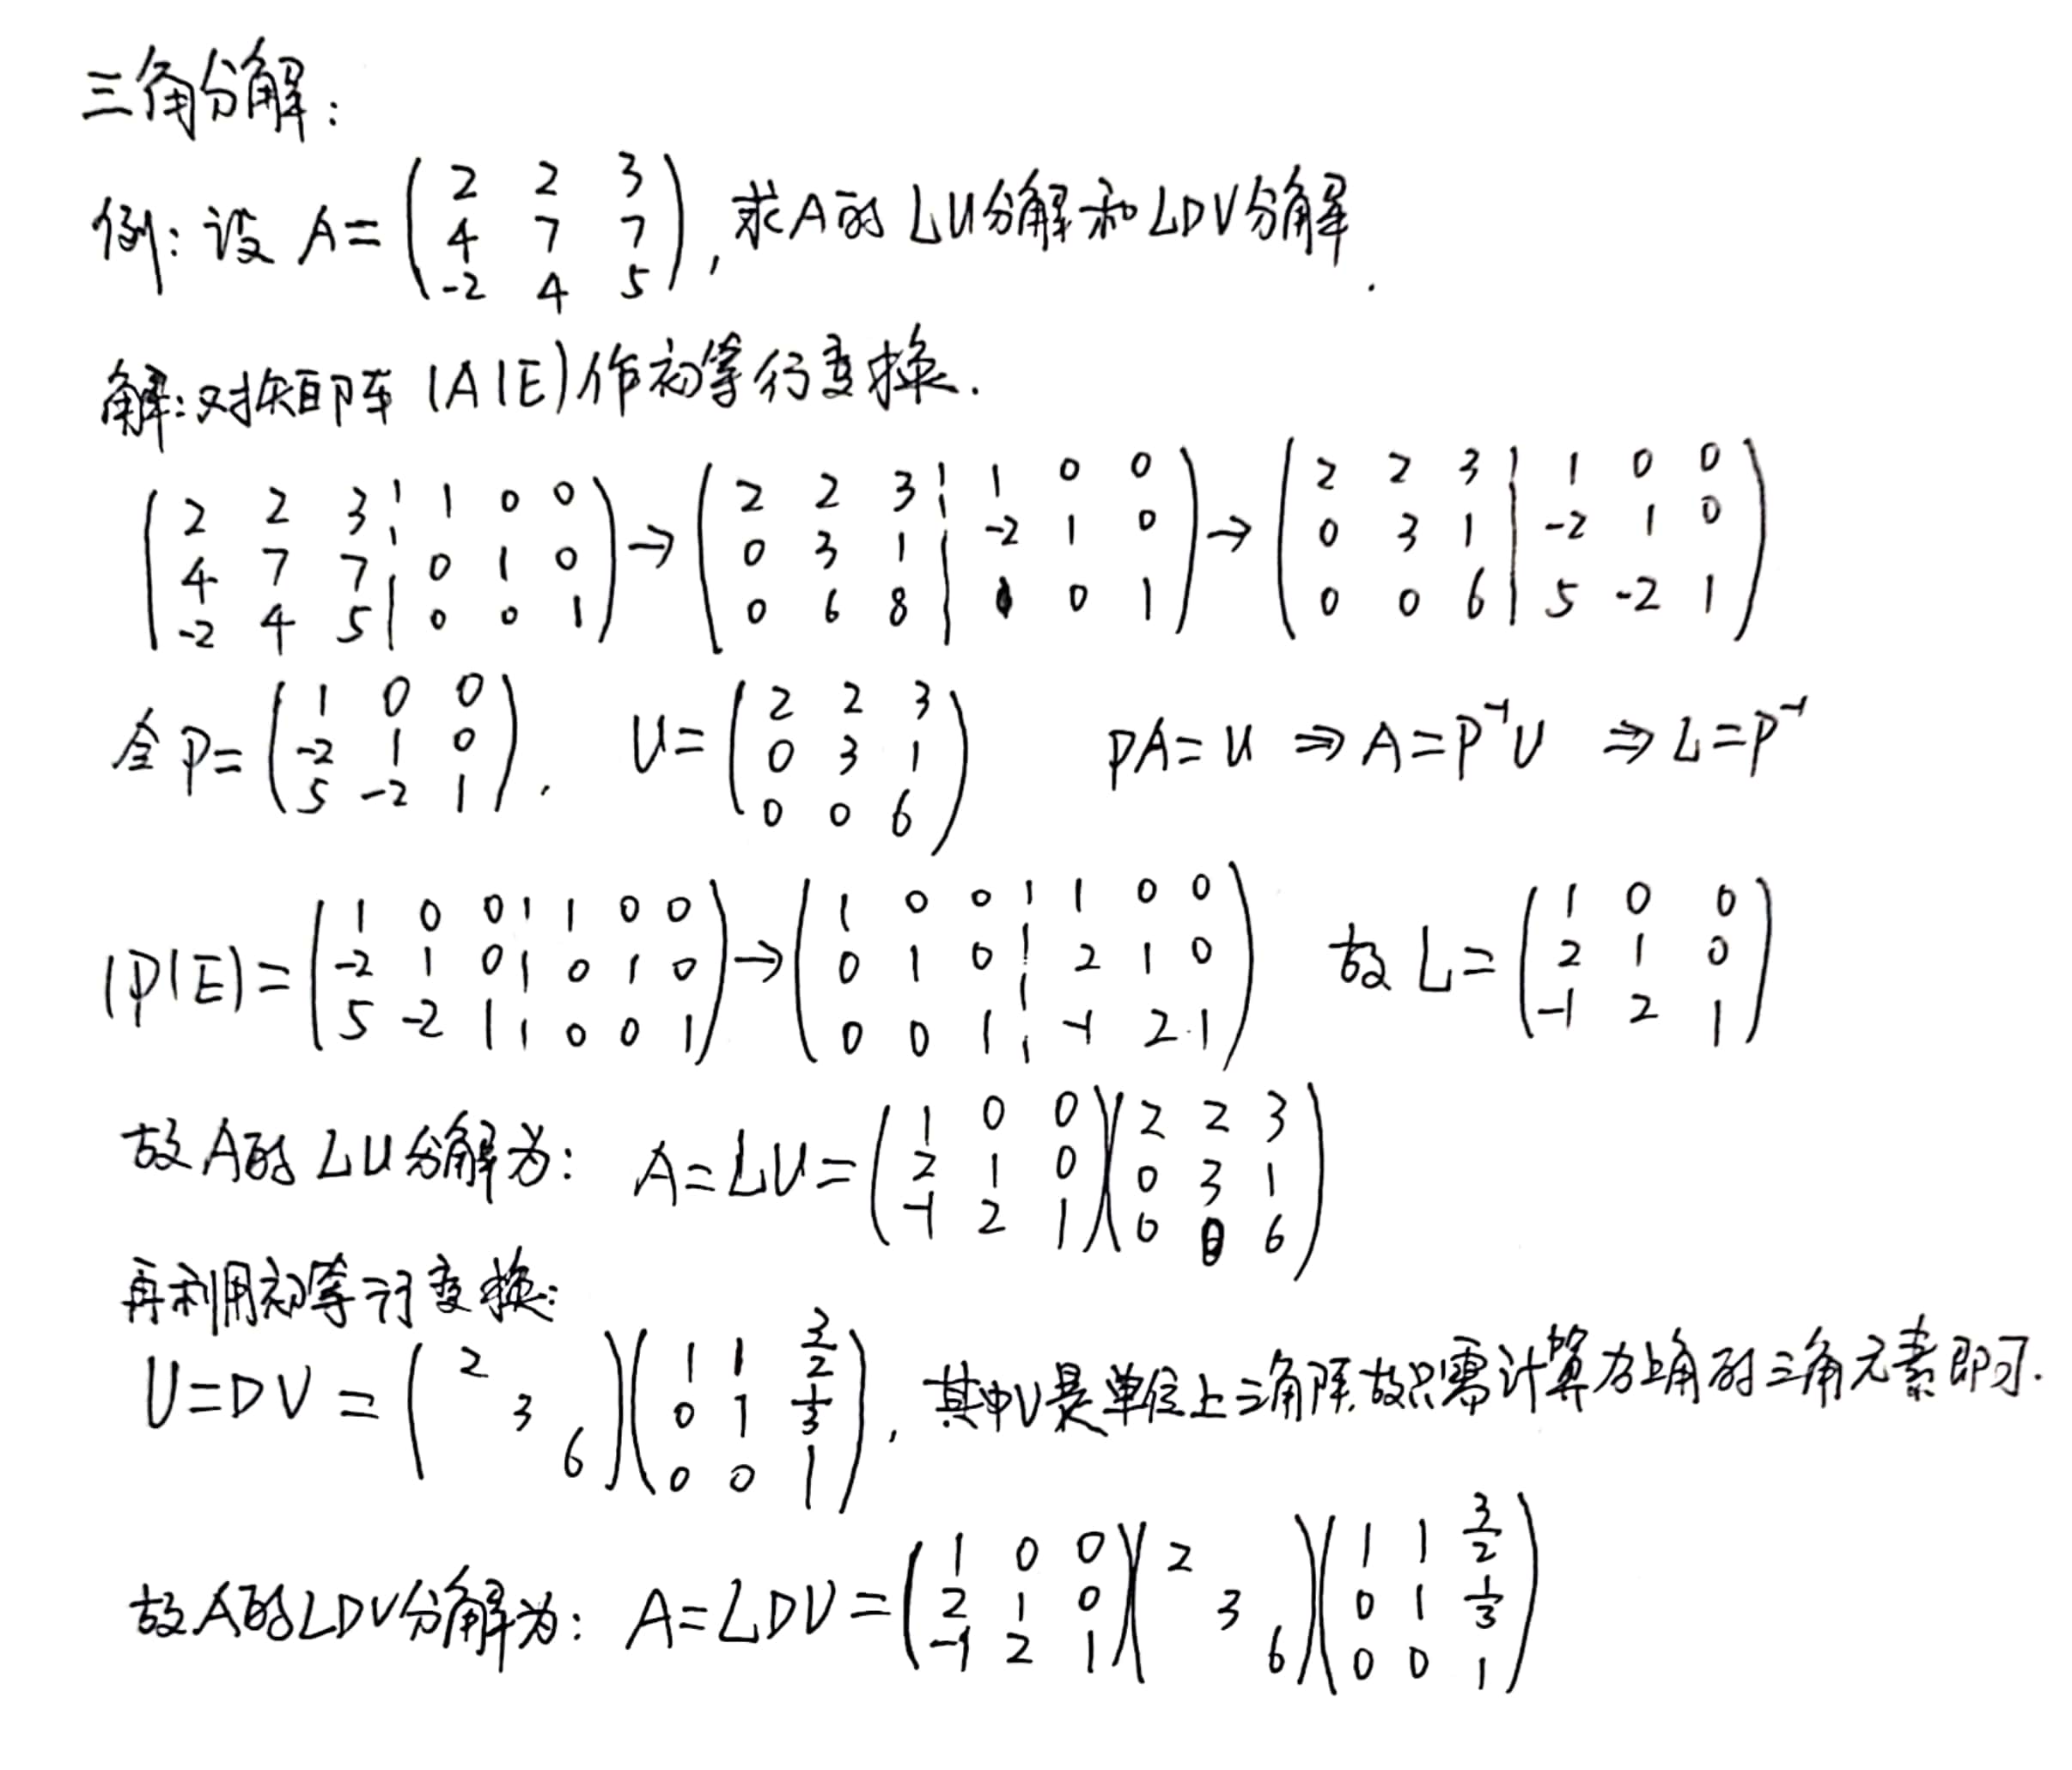 三角分解:
例: 设 A = \begin{pmatrix} 2 & 2 & 3 \\ 4 & 7 & 7 \\ -2 & 4 & 5 \end{pmatrix}, 求A的LU分解和LDV分解.
解: 对矩阵 (A|E)作初等行变换.
\left(\begin{array}{ccc|ccc} 2 & 2 & 3 & 1 & 0 & 0 \\ 4 & 7 & 7 & 0 & 1 & 0 \\ -2 & 4 & 5 & 0 & 0 & 1 \end{array}\right) → \left(\begin{array}{ccc|ccc} 2 & 2 & 3 & 1 & 0 & 0 \\ 0 & 3 & 1 & -2 & 1 & 0 \\ 0 & 6 & 8 & 1 & 0 & 1 \end{array}\right) → \left(\begin{array}{ccc|ccc} 2 & 2 & 3 & 1 & 0 & 0 \\ 0 & 3 & 1 & -2 & 1 & 0 \\ 0 & 0 & 6 & 5 & -2 & 1 \end{array}\right)
令 P = \begin{pmatrix} 1 & 0 & 0 \\ -2 & 1 & 0 \\ 5 & -2 & 1 \end{pmatrix}, U = \begin{pmatrix} 2 & 2 & 3 \\ 0 & 3 & 1 \\ 0 & 0 & 6 \end{pmatrix} PA = U ⇒ A = P^{-1}U ⇒ L = P^{-1}
(P|E) = \left(\begin{array}{ccc|ccc} 1 & 0 & 0 & 1 & 0 & 0 \\ -2 & 1 & 0 & 0 & 1 & 0 \\ 5 & -2 & 1 & 0 & 0 & 1 \end{array}\right) → \left(\begin{array}{ccc|ccc} 1 & 0 & 0 & 1 & 0 & 0 \\ 0 & 1 & 0 & 2 & 1 & 0 \\ 0 & 0 & 1 & -1 & 2 & 1 \end{array}\right) 故 L = \begin{pmatrix} 1 & 0 & 0 \\ 2 & 1 & 0 \\ -1 & 2 & 1 \end{pmatrix}
故A的LU分解为: A = LU = \begin{pmatrix} 1 & 0 & 0 \\ 2 & 1 & 0 \\ -1 & 2 & 1 \end{pmatrix}\begin{pmatrix} 2 & 2 & 3 \\ 0 & 3 & 1 \\ 0 & 0 & 6 \end{pmatrix}
再利用初等行变换:
U = DV = \begin{pmatrix} 2 & & \\ & 3 & \\ & & 6 \end{pmatrix}\begin{pmatrix} 1 & 1 & \frac{3}{2} \\ 0 & 1 & \frac{1}{3} \\ 0 & 0 & 1 \end{pmatrix}, 其中V是单位上三角阵,故只需计算右上角的三角元素即可.
故A的LDV分解为: A = LDV = \begin{pmatrix} 1 & 0 & 0 \\ 2 & 1 & 0 \\ -1 & 2 & 1 \end{pmatrix}\begin{pmatrix} 2 & & \\ & 3 & \\ & & 6 \end{pmatrix}\begin{pmatrix} 1 & 1 & \frac{3}{2} \\ 0 & 1 & \frac{1}{3} \\ 0 & 0 & 1 \end{pmatrix}